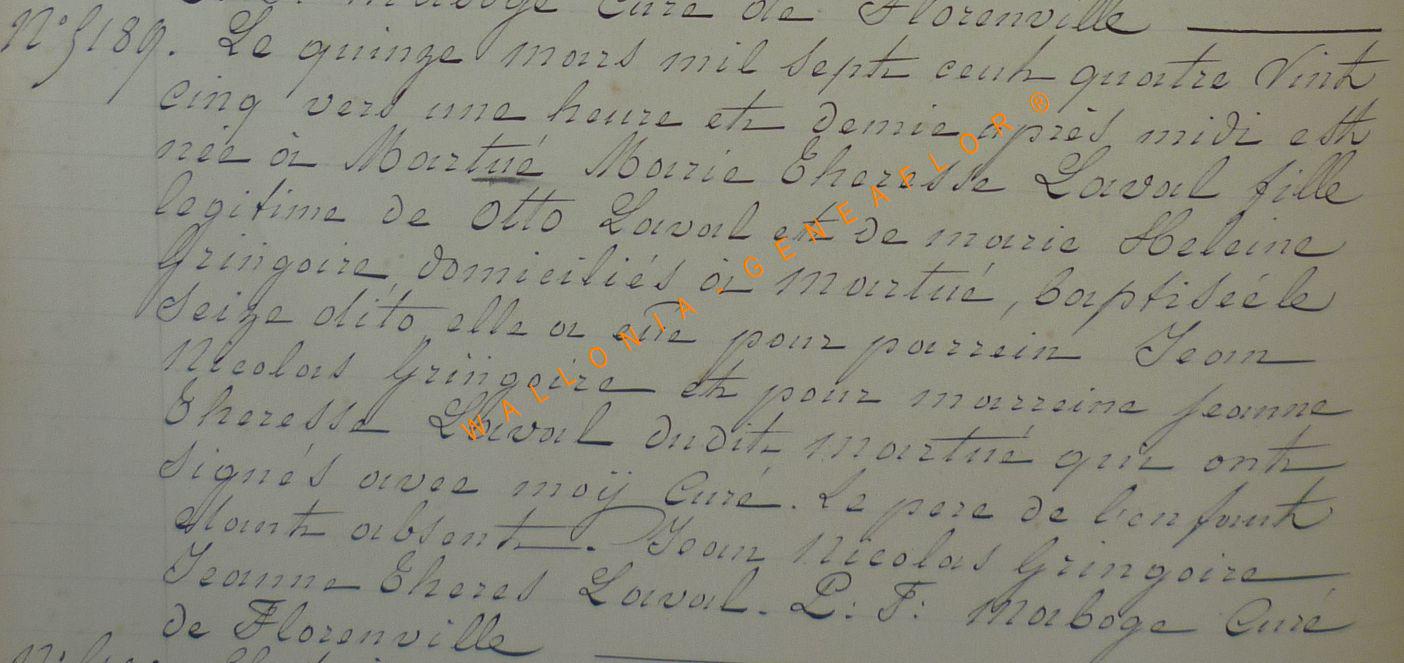 Maboge Curé de Florenville
N° 5189. Le quinze mars mil sept cent quatre Vint
cinq vers une heure et demie après midi est
née à Martué Marie Theresse Laval fille
legitime de Otto Laval et de marie Heleine
Gringoire, domiciliés à Martué, baptisée le
seize dito, elle a eüe pour parrein Jean
Nicolas Gringoire et pour marreine jeanne
Theresse Laval dudit Martué qui ont
signés avec moÿ Curé. Le pere de l'enfant
etant absent. Jean Nicolas Gringoire
Jeanne Theres Laval. P: F: Maboge Curé
de Florenville
WALLONIA - GENEAFLOR ®